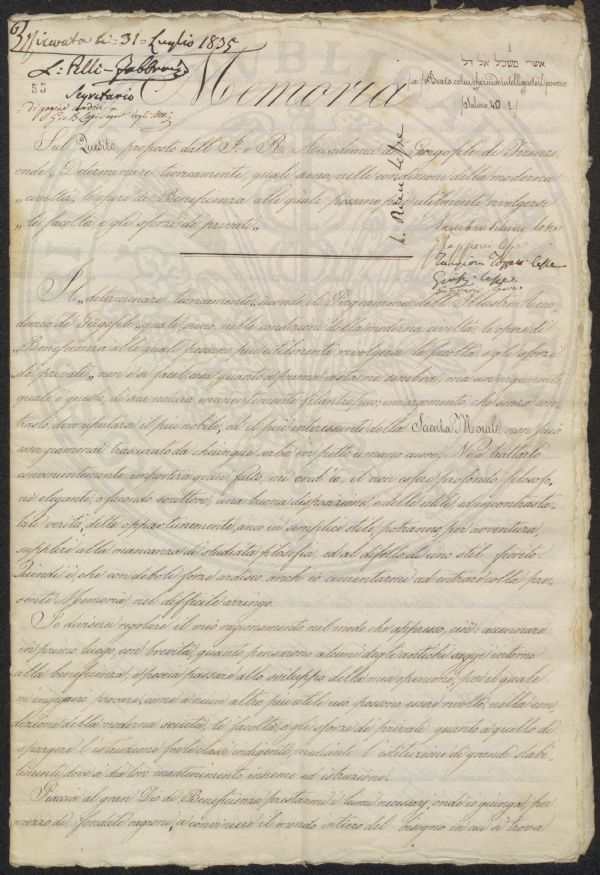 Ricevuta li = 31 = Luglio 1835
L: Pelli-Fabbroni
Segretario
55
1
אשרי משכיל אל דל
Beato colui che
Salmo 40
Memoria
Sul Quesito proposto dall' I. e R. Accademia Georgofili di Firenze,
onde „Determinare teoricamente, quali sieno, nelle condizioni della moderna
„civiltà, le opere di Beneficenza alle quali possano più utilmente rivolgersi
„le facoltà e gli sforzi de' privati„
Il „determinare teoricamente, secondo il Programma dell' Illustre Acca-
demia de' Georgofili „quali sieno, nelle condizioni della moderna civiltà, le opere di
„Beneficenza alle quali possano più utilmente rivolgersi le facoltà e gli sforzi
„de' privati„ non è sì facil cosa quanto a prima vista ne sembra; ma un argomento,
quale è questo, di sua natura eminentemente filantropico; un argomento, che senza con-
trasto, deve reputarsi il più nobile, ed il più interessante della Scienza Morale, non può
esser giammai trascurato da chiunque serba in petto umano cuore. Nè a trattarlo
convenientemente importerà gran fatto, mi cred' io, il non esser profondo filosofo,
nè elegante, e facondo scrittore; una buona disposizione, e delle utili, ed incontrasta-
bili verità, dette opportunemente, anco in semplice stile, potranno per avventura,
supplire alla mancanza di studiata filosofia, ed al difetto di uno stil fiorito.
Quindi è, che con deboli forze ardisco anch' io cimentarmi ad entrare colla pre-
sente Memoria nel difficile arringo.
Io diviserei regolare il mio ragionamento nel modo che appresso, cioè: accennare
in primo luogo, con brevità, quanto pensarono alcuni degli antichi saggi intorno
alla beneficenza, e poscia passare allo sviluppo della mia opinione, per il quale
m' ingegnerò provare, come a niun altro più utile uso possono esser rivolte, nella con-
dizione della moderna società, le facoltà, e gli sforzi de' privati, quanto a quello di
spargere l' istruzione fra le classi indigenti, mediante l' istituzione di grandi stabi-
limenti, dove si dia loro mantenimento insieme ed istruzione.
Piaccia al gran Dio di Beneficenza prestarmi i lumi necessarj, ond' io giunga, per
mezzo di fondate ragioni, a convincere il mondo intiero del bisogno in cui si trova